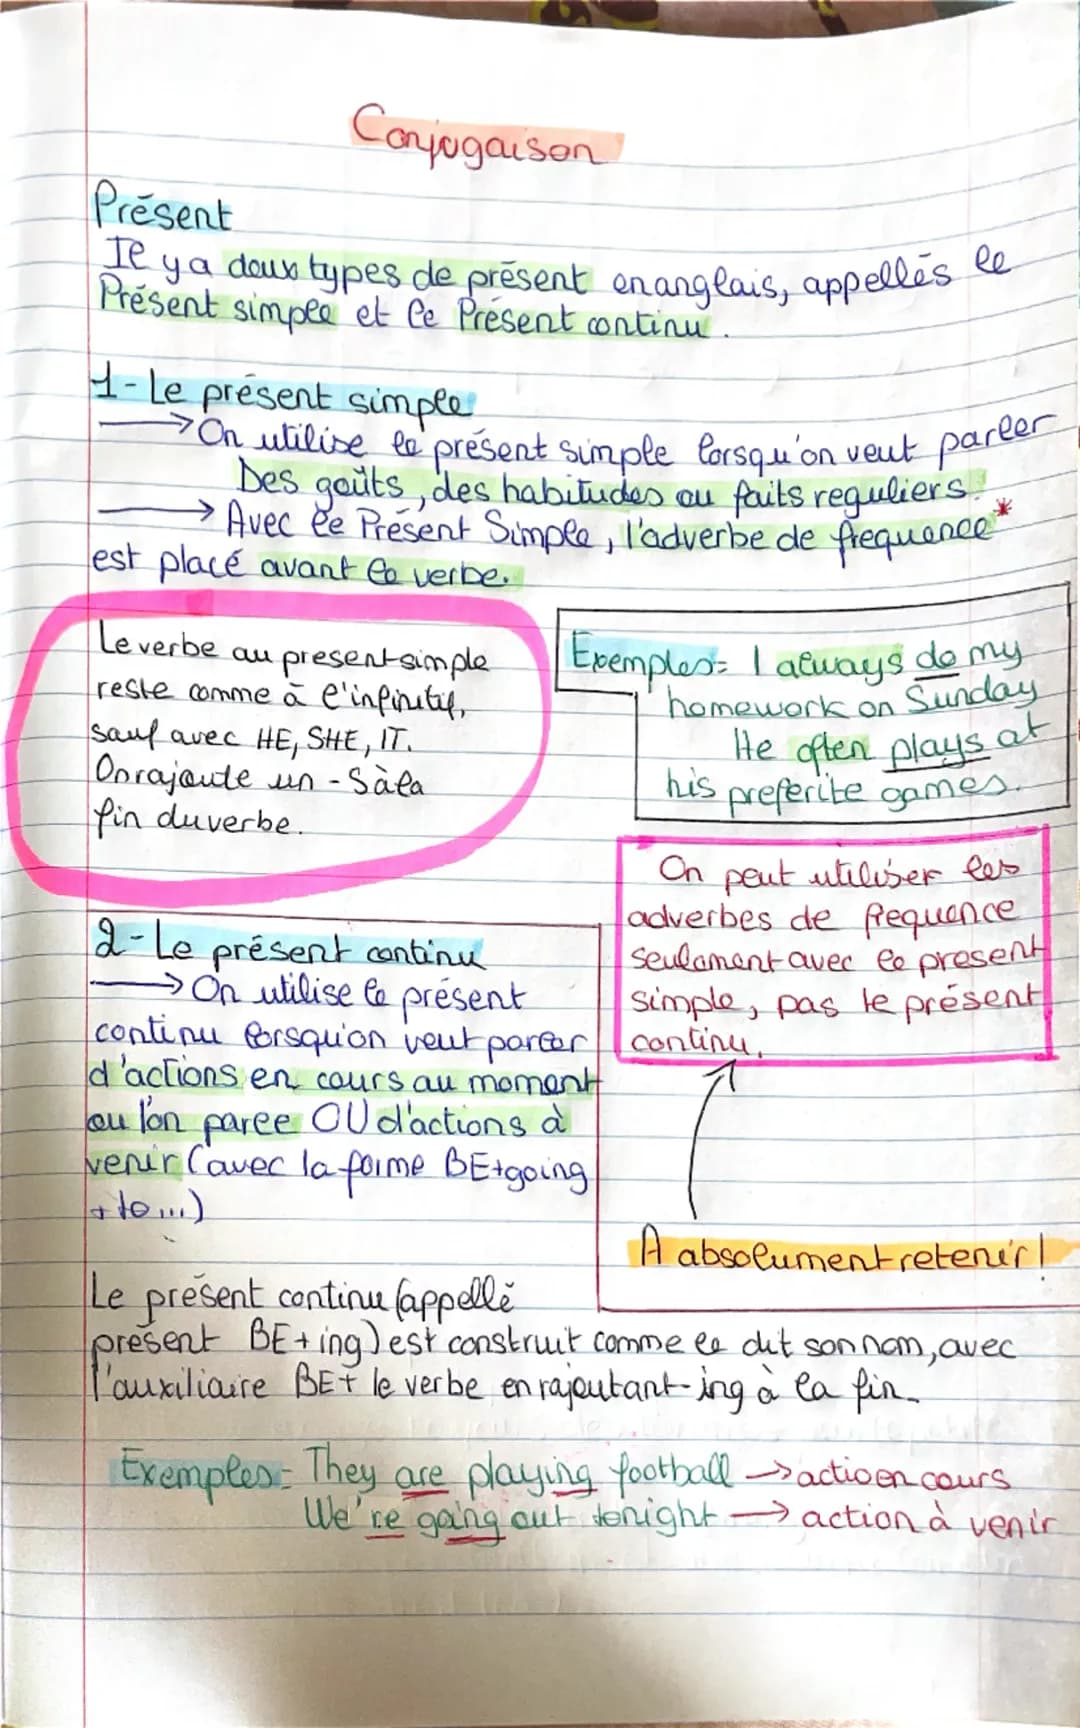 Conjugaison
Présent
Il y a deux types de présent en anglais, appellés le
Présent simple et le Présent continu.
1-Le présent simple
→ On utilise le présent simple lorsqu'on veut parler
Des goûts, des habitudes ou faits reguliers.
→ Avec le Présent Simple, l'adverbe de frequence*
est placé avant le verbe.
Le verbe au present simple
reste comme à l'infinitif,
sauf avec HE, SHE, IT.
On rajoute un -S à la
fin du verbe.
Exemples= I always do my
homework on Sunday
He often plays at
his preferite games.
On peut utiliser les
adverbes de frequence
seulement avec le present
simple, pas le présent
continu.
2-Le présent continu
→ On utilise le présent
continu lorsqu'on veut parler
d'actions en cours au moment
ou l'on parle OU d'actions à
venir (avec la forme BE+going
+ to...)
A absolument retenir!
Le présent continu (appellé
présent BE+ing) est construit comme le dit son nom, avec
l'auxiliaire BE+ le verbe en rajoutant -ing à la fin.
Exemples= They are playing football → action en cours
We're going out tonight → action à venir